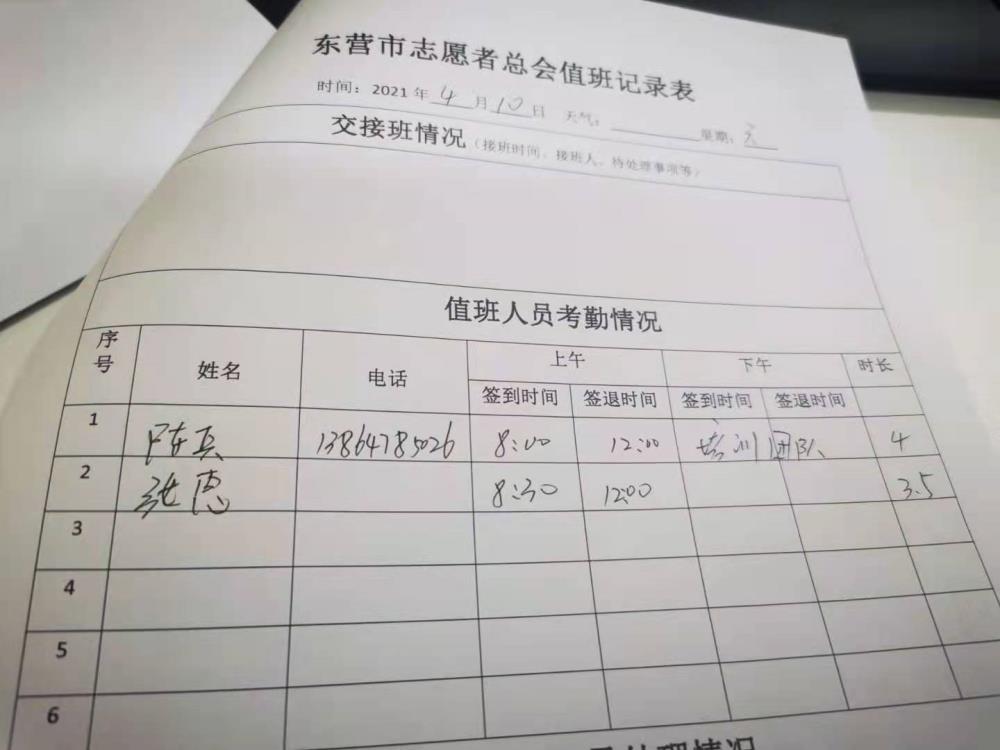 东营市志愿者总会值班记录表
时间：2021年4月10日 天气： 星期：六
交接班情况（接班时间、接班人、待处理事项等）
值班人员考勤情况
序号 姓名 电话 上午 下午 时长
签到时间 签退时间 签到时间 签退时间
1 陈兵 13864785026 8:00 12:00 培训团队 4
2 张 8:30 12:00 3.5
3
4
5
6